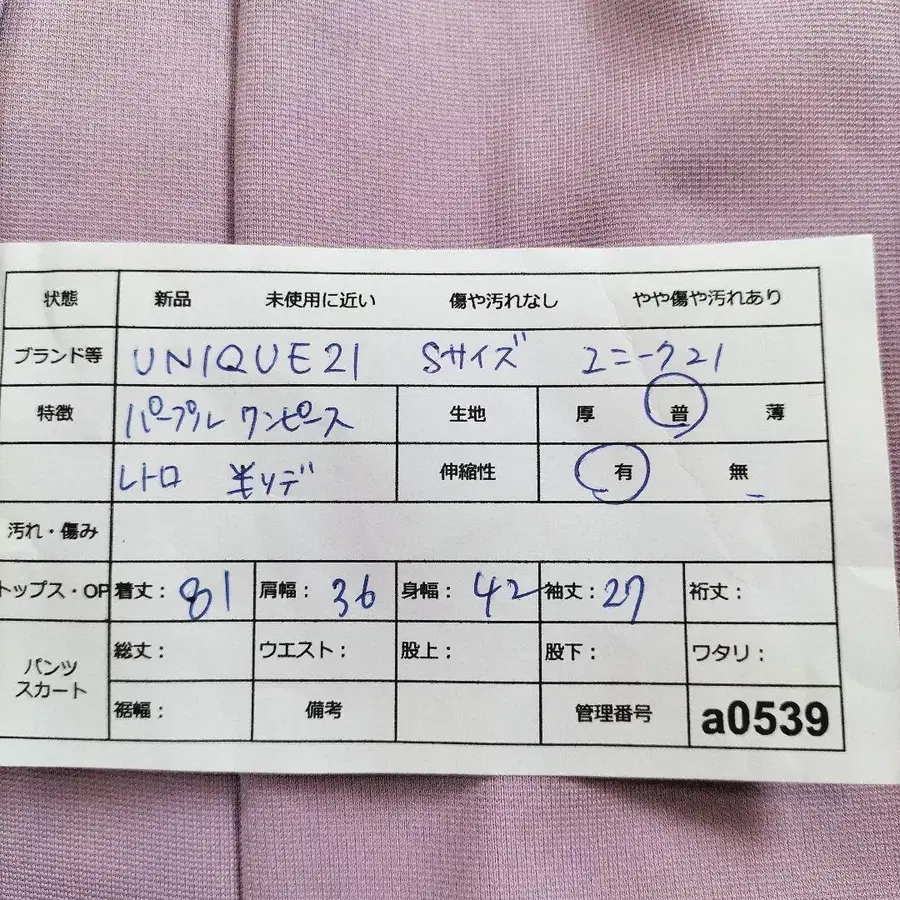 状態 新品 未使用に近い 傷や汚れなし やや傷や汚れあり
ブランド等 UNIQUE21 Sサイズ ユニーク21
特徴 パープル ワンピース 生地 厚 普 薄
レトロ 半ソデ 伸縮性 有 無
汚れ・傷み
トップス・OP 着丈: 81 肩幅: 36 身幅: 42 袖丈: 27 裄丈:
パンツ スカート 総丈: ウエスト: 股上: 股下: ワタリ:
裾幅: 備考 管理番号 a0539